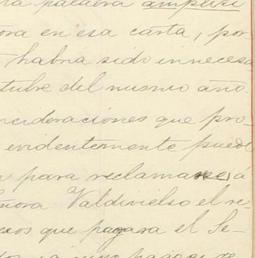 la palabra
ora en esa carta, por
habria sido innecesa
tubre del mismo año.
nsideraciones que pro
evidentemente puede
para reclamarse á
ñora Valdivielso el re
esos que pagara el Se